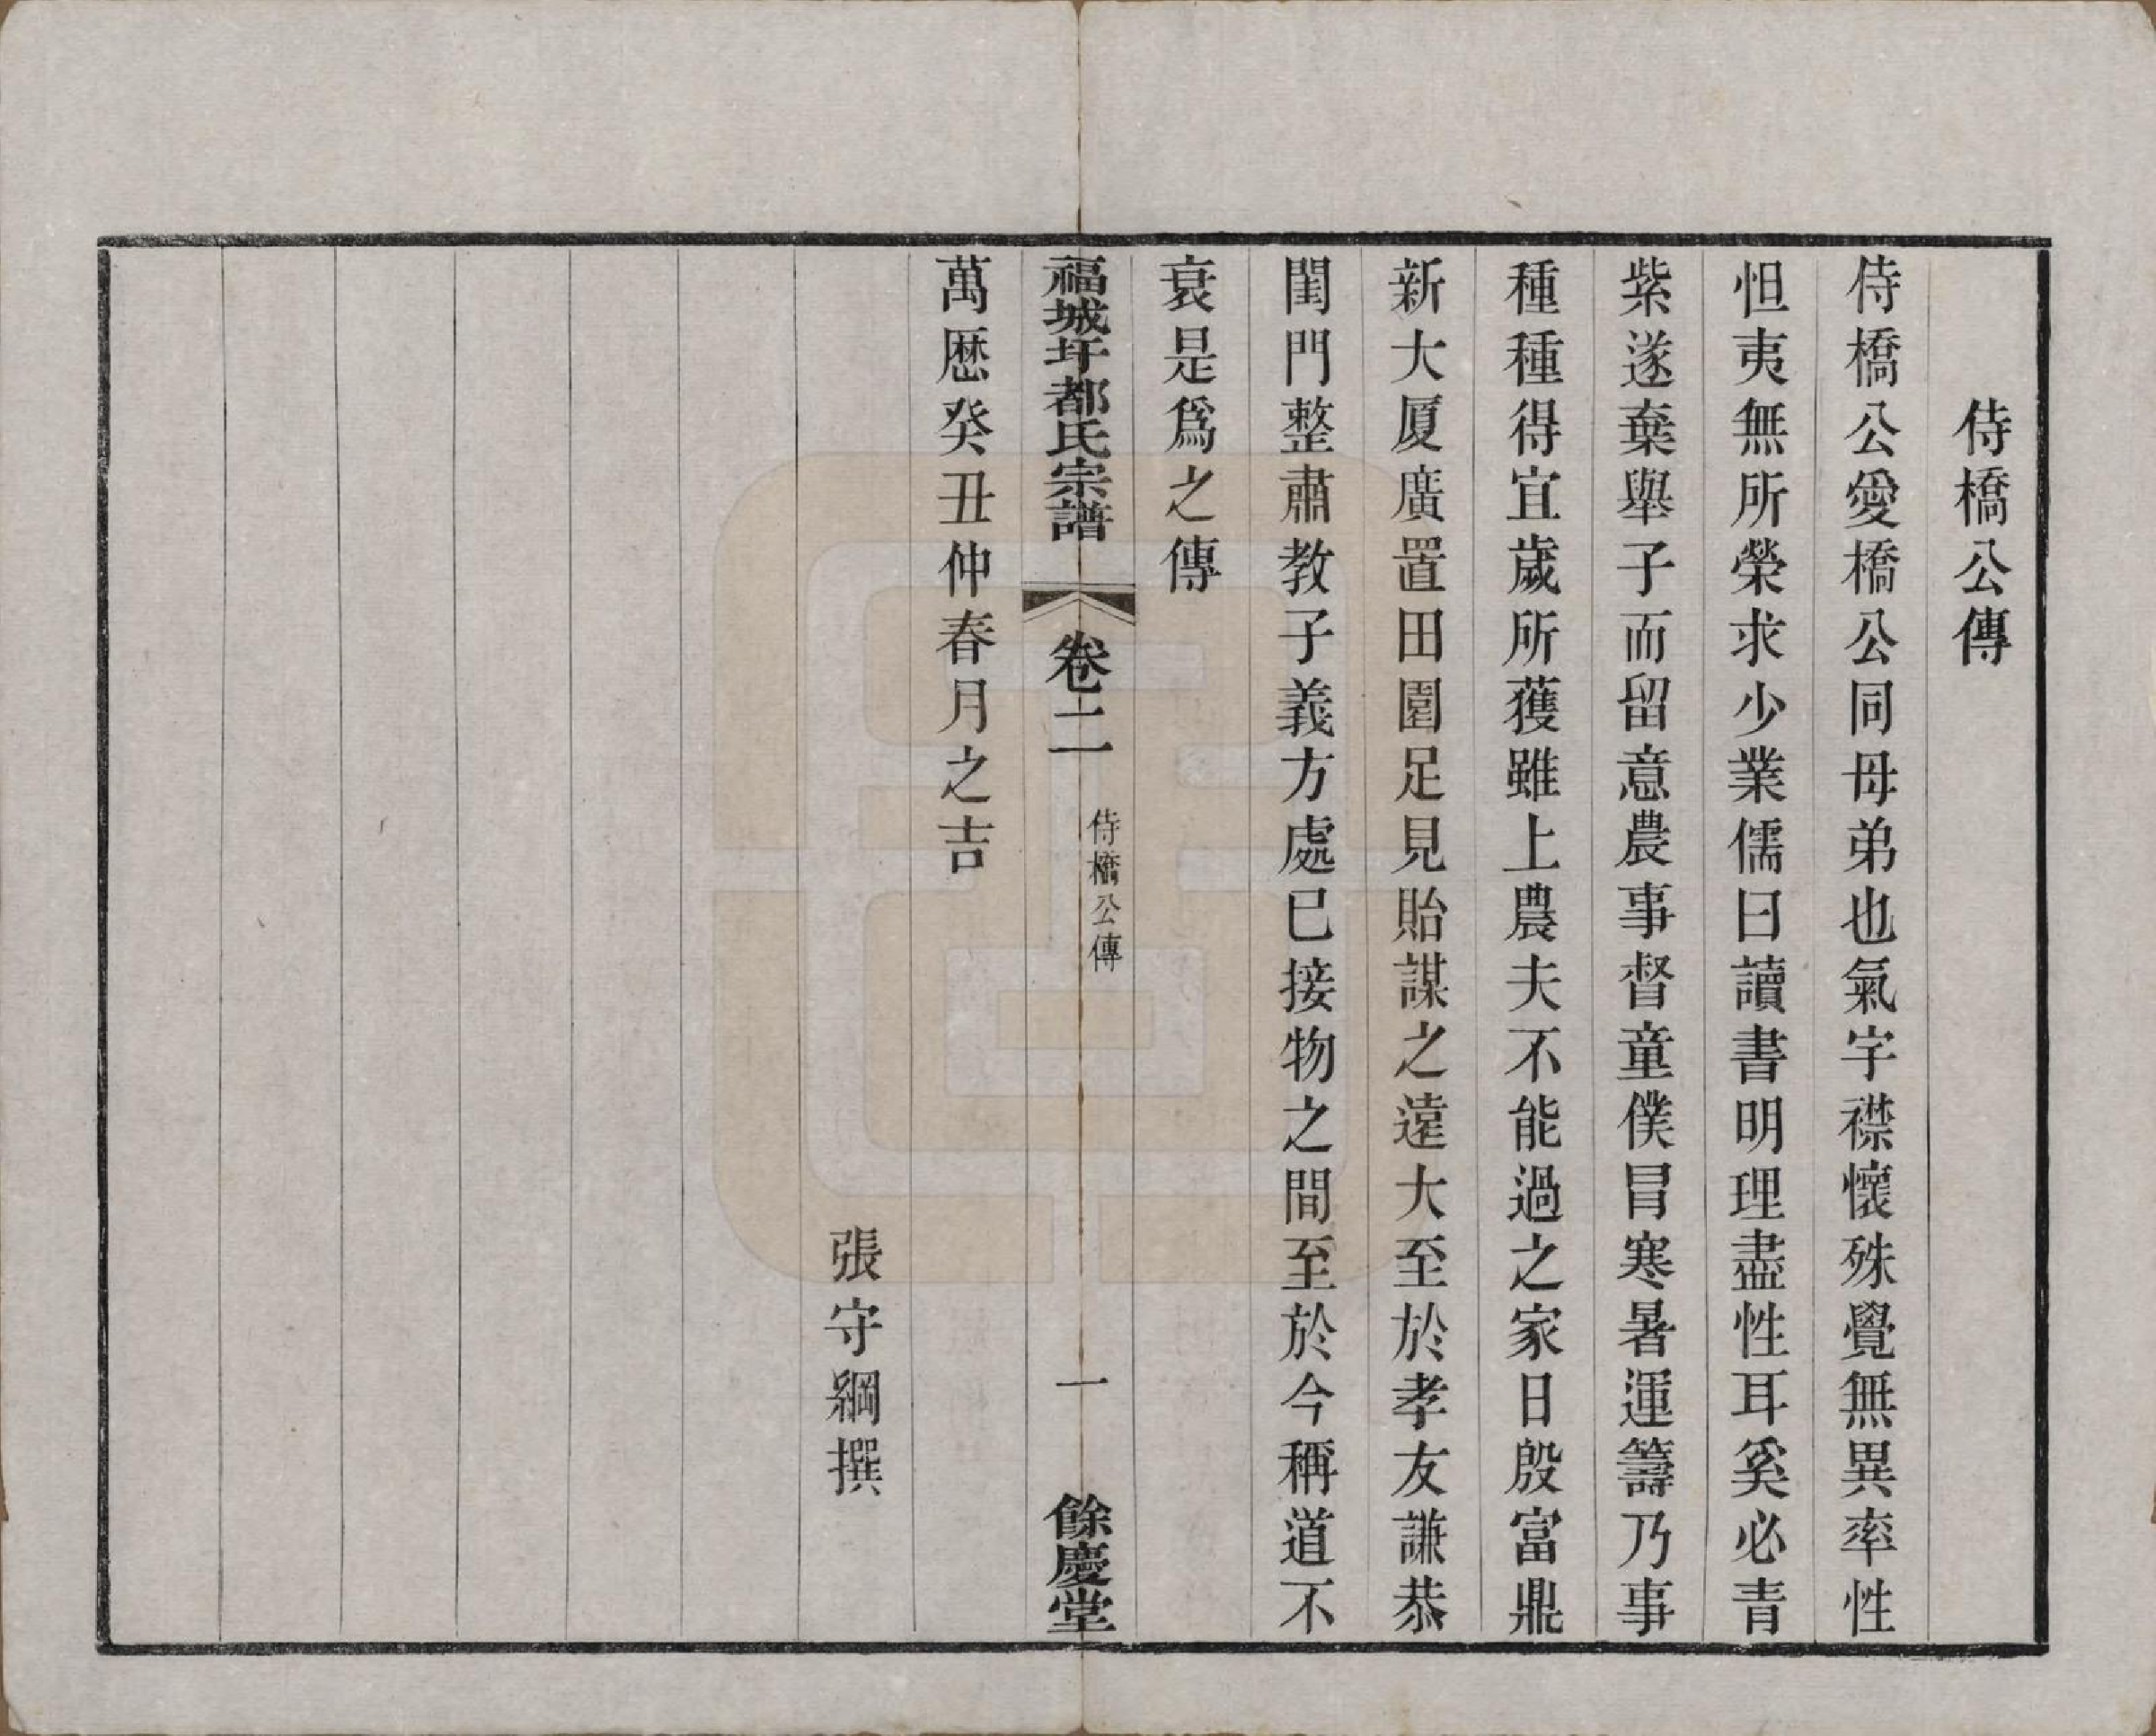 侍橋公傳
侍橋公愛橋公同母弟也氣宇襟懷殊覺無異率性
怛夷無所榮求少業儒曰讀書明理盡性耳奚必青
紫遂棄舉子而留意農事督童僕冒寒暑運籌乃事
種種得宜歲所獲雖上農夫不能過之家日殷富鼎
新大厦廣置田園足見貽謀之遠大至於孝友謙恭
閨門整肅教子義方處已接物之間至於今稱道不
衰是爲之傳
福城圩都氏宗譜
卷二
侍橋公傳
一
餘慶堂
萬厯癸丑仲春月之吉
張守綱撰